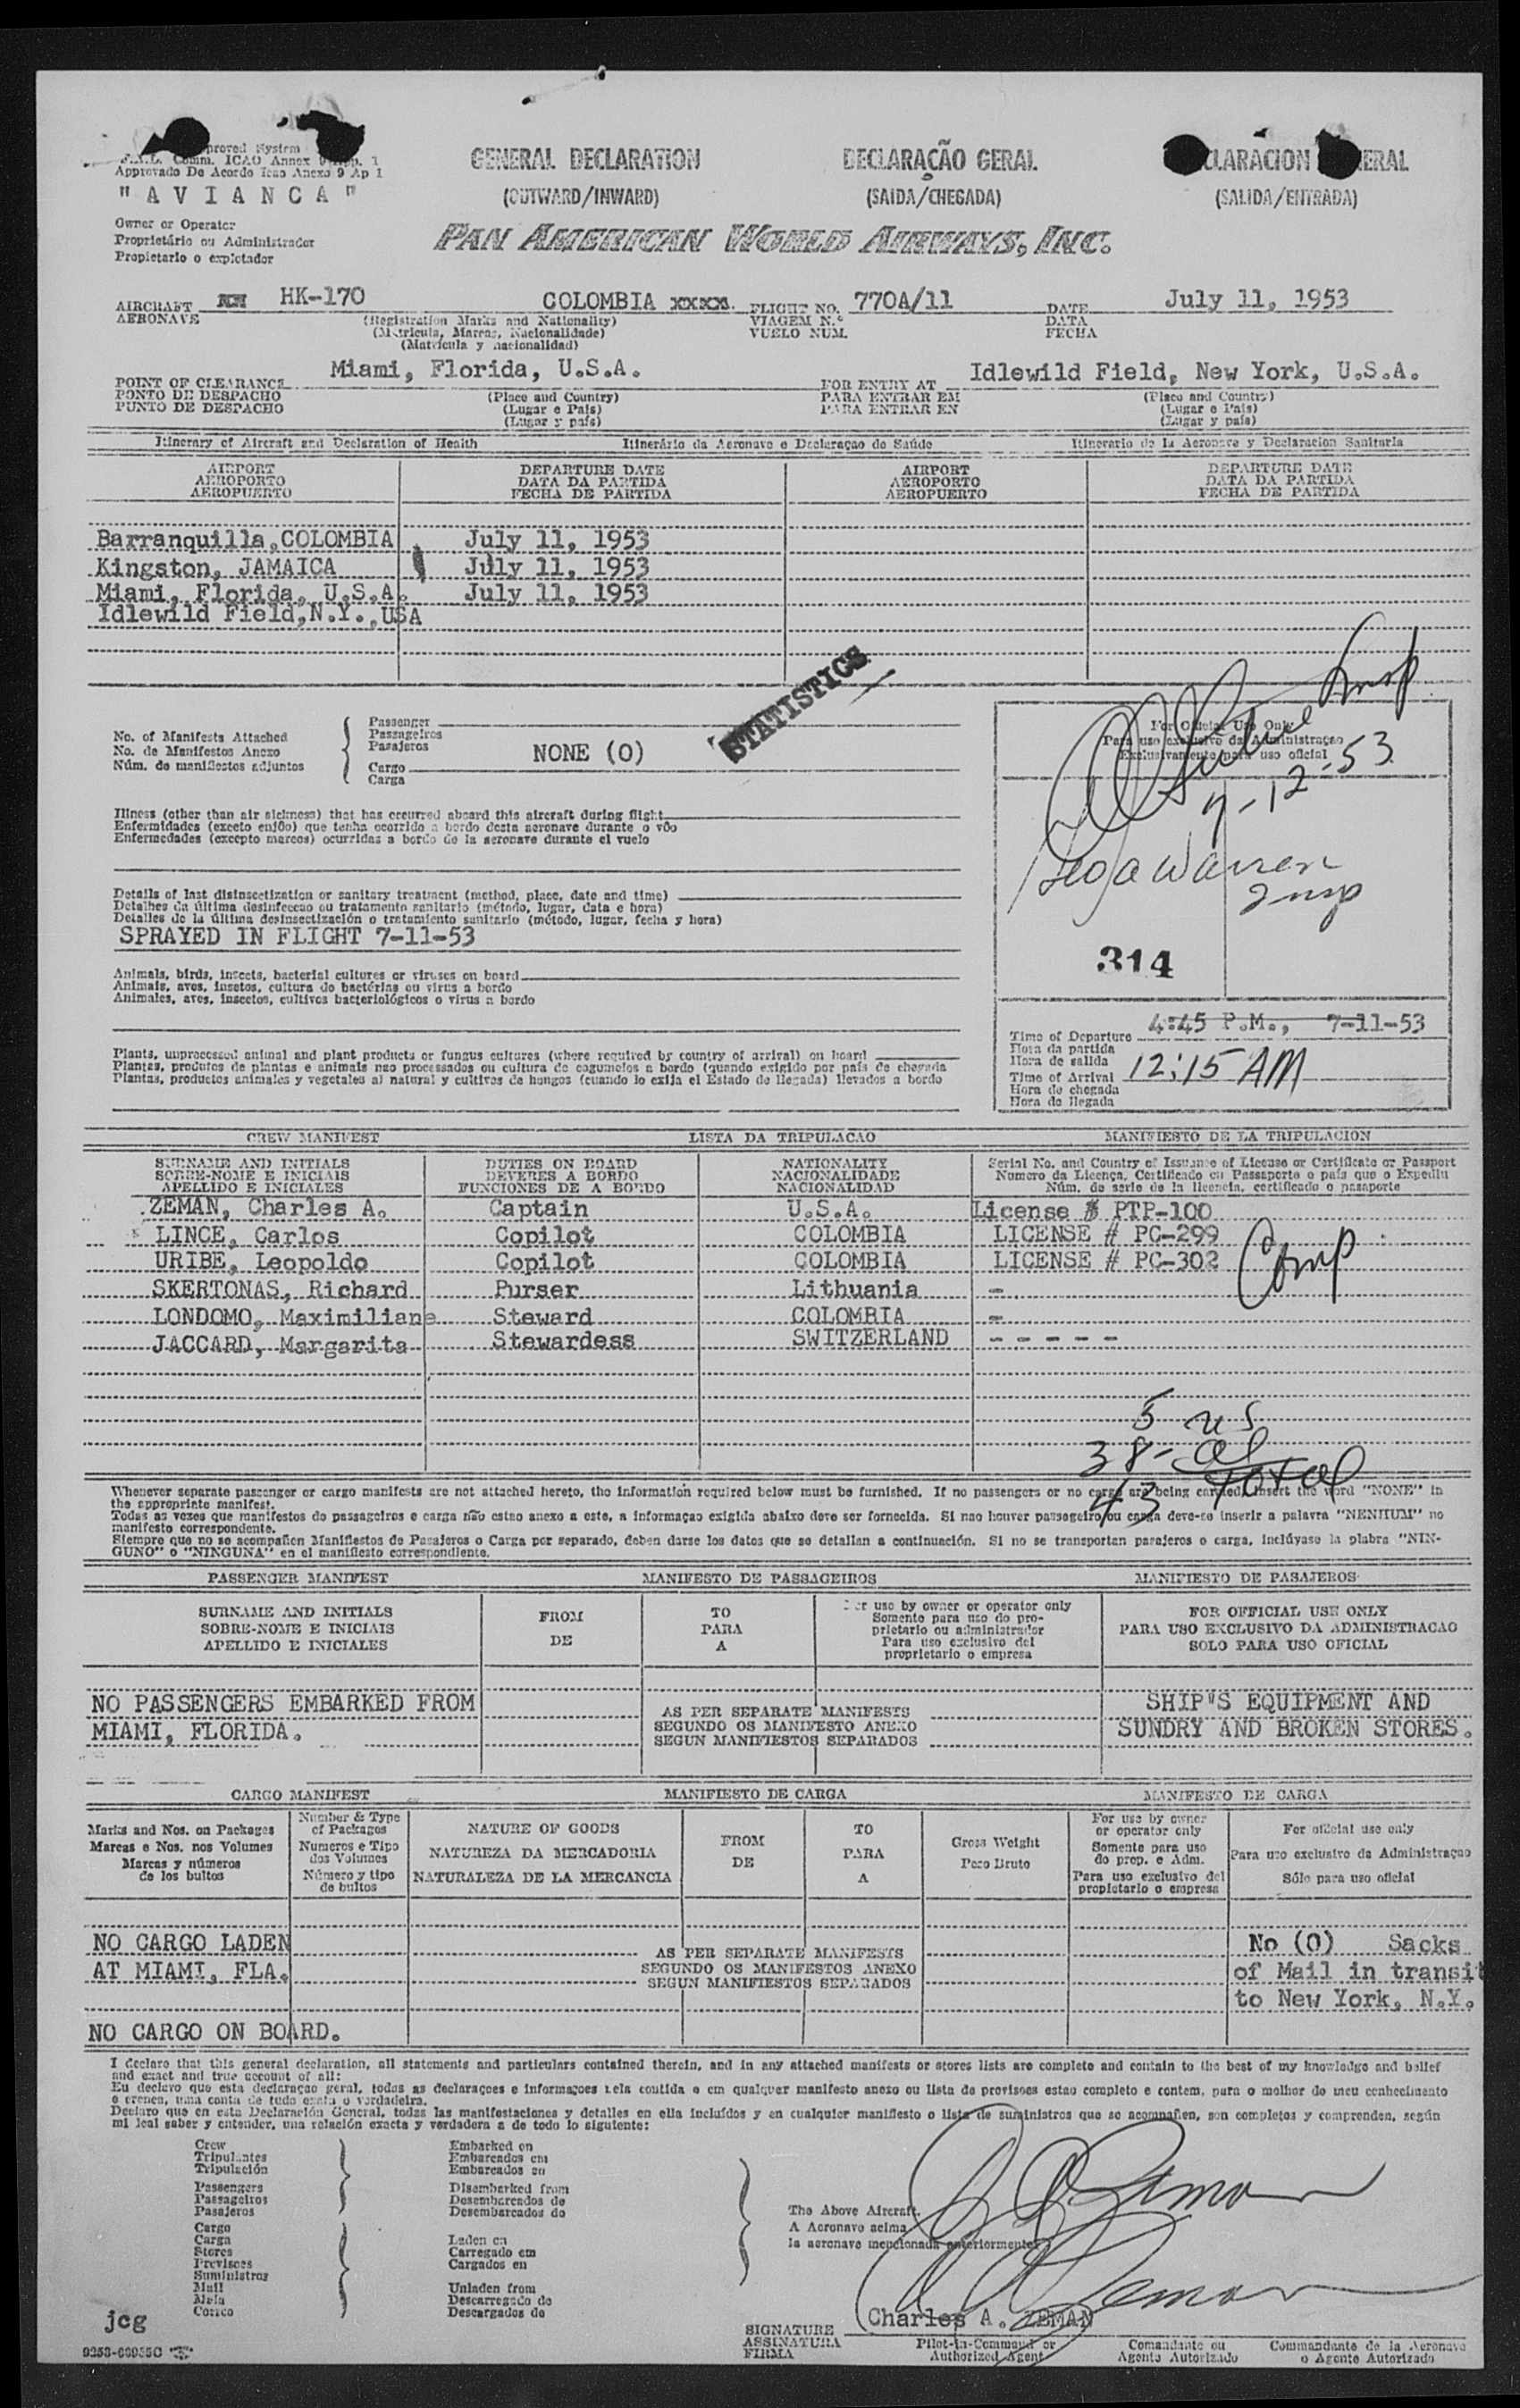 proved System
F.A.L. Comm. ICAO Annex 9 App. 1
Approvado De Acordo Icao Anexo 9 Ap 1
"AVIANCA"
Owner or Operator
Proprietário ou Administrador
Propietario o explotador
GENERAL DECLARATION
(OUTWARD/INWARD)
DECLARAÇÃO GERAL
(SAIDA/CHEGADA)
CLARACION ERAL
(SALIDA/ENTRADA)
PAN AMERICAN WORLD AIRWAYS, INC.
AIRCRAFT HK-170 COLOMBIA xxxx. FLIGHT NO. 770A/11 DATE July 11, 1953
AERONAVE (Registration Marks and Nationality) VIAGEM N.º DATA
(Matricula, Marcas, Nacionalidade) VUELO NUM. FECHA
(Matrícula y nacionalidad)
POINT OF CLEARANCE Miami, Florida, U.S.A. FOR ENTRY AT Idlewild Field, New York, U.S.A.
PONTO DE DESPACHO (Place and Country) PARA ENTRAR EM (Place and Country)
PUNTO DE DESPACHO (Lugar e Pais) PARA ENTRAR EN (Lugar e Pais)
(Lugar y país) (Lugar y país)
Itinerary of Aircraft and Declaration of Health Itinerário da Aeronave e Declaraçao de Saúde Itinerario de la Aeronave y Declaracion Sanitaria
AIRPORT DEPARTURE DATE AIRPORT DEPARTURE DATE
AEROPORTO DATA DA PARTIDA AEROPORTO DATA DA PARTIDA
AEROPUERTO FECHA DE PARTIDA AEROPUERTO FECHA DE PARTIDA
Barranquilla, COLOMBIA July 11, 1953
Kingston, JAMAICA July 11, 1953
Miami, Florida, U.S.A. July 11, 1953
Idlewild Field, N.Y., USA
STATISTICS
No. of Manifests Attached
No. de Manifestos Anexo
Núm. de manifiestos adjuntos
Passenger
Passageiros
Pasajeros
NONE (0)
Cargo
Carga
Insp
For Official Use Only
Para uso exclusivo da Administraçao
Exclusivamente para uso oficial
7-12-53
Warren
Insp
314
Illness (other than air sickness) that has occurred aboard this aircraft during flight
Enfermidades (exceto enjôo) que tenha ocorrido a bordo desta aeronave durante o vôo
Enfermedades (excepto mareos) ocurridas a bordo de la aeronave durante el vuelo
Details of last disinsectization or sanitary treatment (method, place, date and time)
Detalhes da última desinfeccao ou tratamento sanitario (método, lugar, data e hora)
Detalles de la última desinsectización o tratamiento sanitario (método, lugar, fecha y hora)
SPRAYED IN FLIGHT 7-11-53
Animals, birds, insects, bacterial cultures or viruses on board
Animais, aves, insetos, cultura de bactérias ou virus a bordo
Animales, aves, insectos, cultivos bacteriológicos o virus a bordo
Plants, unprocessed animal and plant products or fungus cultures (where required by country of arrival) on board
Plantas, produtos de plantas e animais nao processados ou cultura de cogumelos a bordo (quando exigido por pais de chegada
Plantas, productos animales y vegetales al natural y cultivos de hongos (cuando lo exija el Estado de llegada) llevados a bordo
Time of Departure 4:45 P.M., 7-11-53
Hora da partida
Hora de salida
Time of Arrival 12:15 AM
Hora de chegada
Hora de llegada
CREW MANIFEST LISTA DA TRIPULACAO MANIFIESTO DE LA TRIPULACION
SURNAME AND INITIALS DUTIES ON BOARD NATIONALITY Serial No. and Country of Issuance of License or Certificate or Passport
SOBRE-NOME E INICIAIS DEVERES A BORDO NACIONALIDADE Numero da Licença, Certificado ou Passaporte o país que o Expediu
APELLIDO E INICIALES FUNCIONES DE A BORDO NACIONALIDAD Núm. de serie de la licencia, certificado o pasaporte
ZEMAN, Charles A. Captain U.S.A. License # PTP-100
LINCE, Carlos Copilot COLOMBIA LICENSE # PC-299
URIBE, Leopoldo Copilot COLOMBIA LICENSE # PC-302
Comp
SKERTONAS, Richard Purser Lithuania -
LONDOMO, Maximiliane Steward COLOMBIA -
JACCARD, Margarita Stewardess SWITZERLAND - - - - -
5 US
38- al
43 Total
Whenever separate passenger or cargo manifests are not attached hereto, the information required below must be furnished. If no passengers or no cargo are being carried, insert the word "NONE" in
the appropriate manifest.
Todas as vezes que manifestos do passageiros e carga não estao anexo a este, a informaçao exigida abaixo deve ser fornecida. Si nao houver passageiro/ou carga deve-se inserir a palavra "NENHUM" no
manifesto correspondente.
Siempre que no se acompañen Manifiestos de Pasajeros o Carga por separado, deben darse los datos que se detallan a continuación. Si no se transportan pasajeros o carga, inclúyase la plabra "NIN-
GUNO" o "NINGUNA" en el manifiesto correspondiente.
PASSENGER MANIFEST MANIFESTO DE PASSAGEIROS MANIFIESTO DE PASAJEROS
SURNAME AND INITIALS FROM TO For use by owner or operator only FOR OFFICIAL USE ONLY
SOBRE-NOME E INICIAIS DE PARA Somente para uso do pro- PARA USO EXCLUSIVO DA ADMINISTRACAO
APELLIDO E INICIALES A prietario ou administrador SOLO PARA USO OFICIAL
Para uso exclusivo del
proprietario o empresa
NO PASSENGERS EMBARKED FROM AS PER SEPARATE MANIFESTS SHIP'S EQUIPMENT AND
MIAMI, FLORIDA. SEGUNDO OS MANIFESTO ANEXO SUNDRY AND BROKEN STORES.
SEGUN MANIFIESTOS SEPARADOS
CARGO MANIFEST MANIFIESTO DE CARGA MANIFESTO DE CARGA
Marks and Nos. on Packages
Marcas e Nos. nos Volumes
Marcas y números
de los bultos
Number & Type
of Packages
Numeros e Tipo
dos Volumes
Número y tipo
de bultos
NATURE OF GOODS
NATUREZA DA MERCADORIA
NATURALEZA DE LA MERCANCIA
FROM
DE
TO
PARA
A
Gross Weight
Peso Bruto
For use by owner
or operator only
Somente para uso
do prop. e Adm.
Para uso exclusivo del
propietario o empresa
For official use only
Para uso exclusivo da Administraçao
Sólo para uso oficial
NO CARGO LADEN
AT MIAMI, FLA.
AS PER SEPARATE MANIFESTS
SEGUNDO OS MANIFESTOS ANEXO
SEGUN MANIFIESTOS SEPARADOS
No (0) Sacks
of Mail in transit
to New York, N.Y.
NO CARGO ON BOARD.
I declare that this general declaration, all statements and particulars contained therein, and in any attached manifests or stores lists are complete and contain to the best of my knowledge and belief
and exact and true account of all:
Eu declaro que esta declaraçao geral, todas as declaraçoes e informaçoes nela contida e em qualquer manifesto anexo ou lista de provisoes estao completo e contem, para o melhor do meu conhecimento
e crenca, uma conta de tudo exata o verdadeira.
Declaro que en esta Declaración General, todas las manifestaciones y detalles en ella incluídos y en cualquier manifiesto o lista de suministros que se acompañen, son completos y comprenden, según
mi leal saber y entender, una relación exacta y verdadera a de todo lo siguiente:
Crew
Tripulantes
Tripulación
Passengers
Passageiros
Pasajeros
Cargo
Carga
Stores
Previsoes
Suministros
Mail
Mala
Correo
Embarked on
Embarcados em
Embarcados en
Disembarked from
Desembarcados de
Desembarcados de
Laden on
Carregado em
Cargados en
Unladen from
Descarregado de
Descargados de
The Above Aircraft.
A Aeronave acima
la aeronave mencionada anteriormente
Zeman
Zeman
jcg
SIGNATURE Charles A. ZEMAN
ASSINATURA Pilot-in-Command or Comandante ou Commandante de la Aeronave
FIRMA Authorized Agent Agente Autorizado o Agente Autorizado